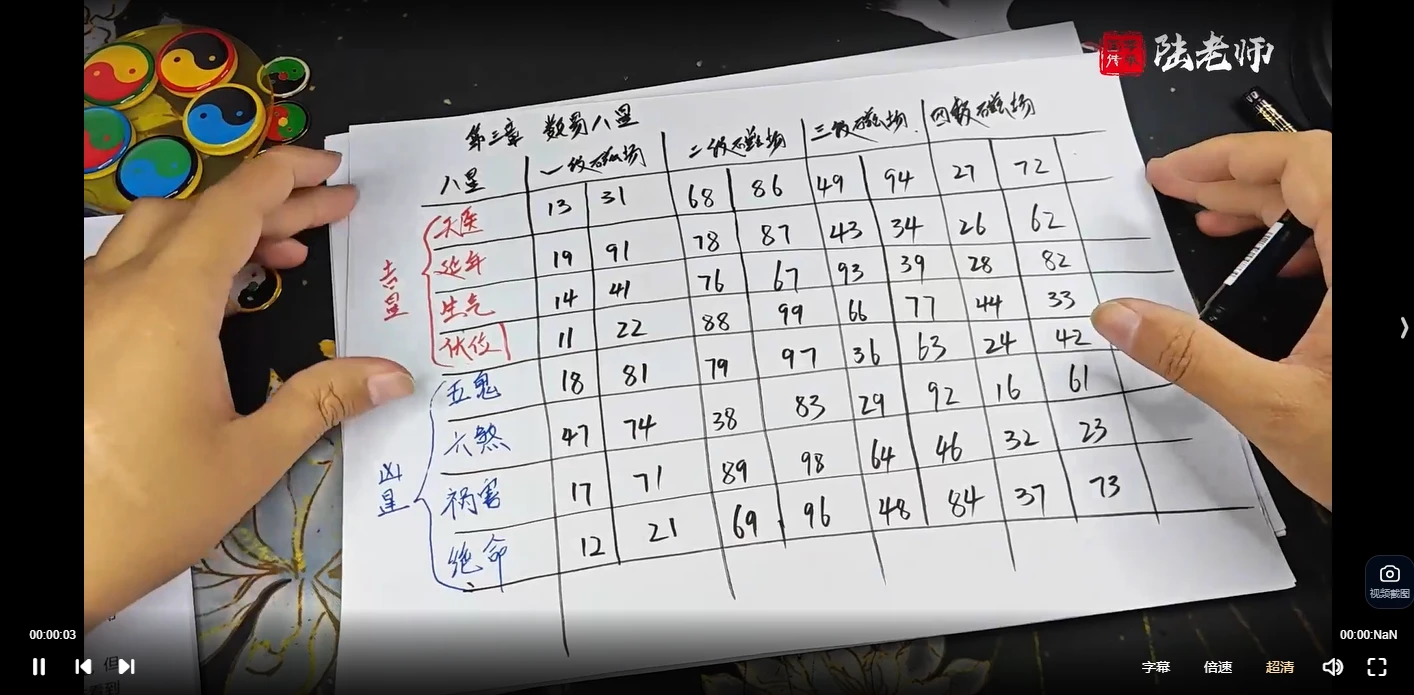 陆老师
第三章 数易八星
八星 一级磁场 二级磁场 三级磁场 四级磁场
吉星
天医 13 31 68 86 49 94 27 72
延年 19 91 78 87 43 34 26 62
生气 14 41 76 67 93 39 28 82
伏位 11 22 88 99 66 77 44 33
凶星
五鬼 18 81 79 97 36 63 24 42
六煞 47 74 38 83 29 92 16 61
祸害 17 71 89 98 64 46 32 23
绝命 12 21 69 96 48 84 37 73
但
视频截图
00:00:03
00:00:NaN
字幕 倍速 超清